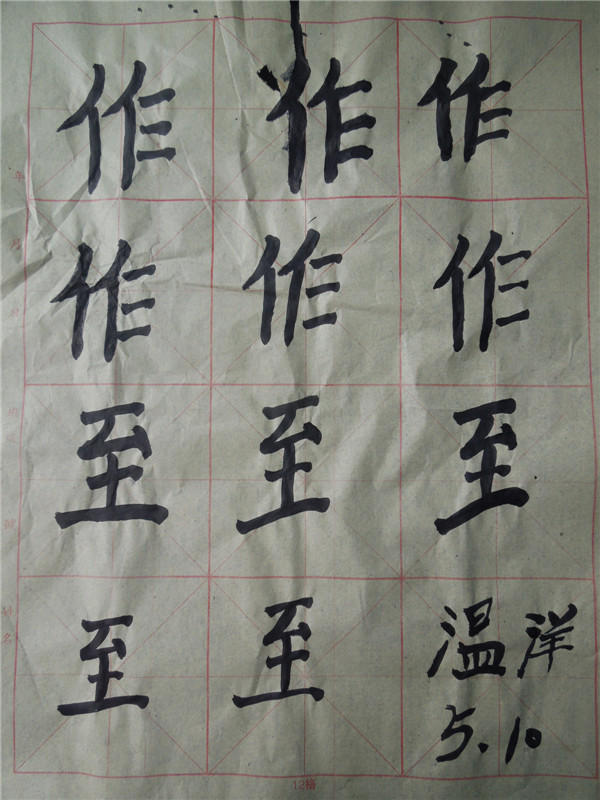 作作作
作作作
至至至
至至温洋
5.10
12格